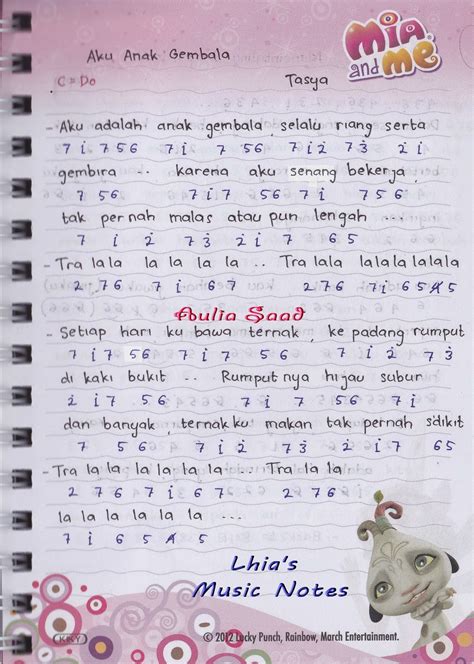 Mia and me
Aku Anak Gembala
C = Do Tasya
- Aku adalah anak gembala selalu riang serta
7 i 7 5 6 7 i 7 5 6 7 i 2 7 3 2 i
gembira .. karena aku senang bekerja
7 5 6 7 i 7 7 5 6 7 i 7 5 6
tak pernah malas atau pun lengah ...
7 i 2 7 3 2 i 7 6 5
- Tra lala la la la la .. Tra lala lalalalalala
2 7 6 7 i 6 7 2 7 6 7 i 6 5 4 5
Aulia Saad
- Setiap hari ku bawa ternak, ke padang rumput
7 i 7 5 6 7 i 7 5 6 7 i 2 7 3
di kaki bukit .. Rumputnya hijau subur
2 i 7 5 6 7 i 7 5 6 7 i
dan banyak ternakku makan tak pernah s'dikit
7 5 6 7 i 2 7 3 2 i 7 6 5
- Tra la la la la la la ... Tra la la
2 7 6 7 i 6 7 2 7 6
la la la la la la ...
7 i 6 5 4 5
Lhia's
Music Notes
KKY
© 2012 Lucky Punch, Rainbow, March Entertainment.